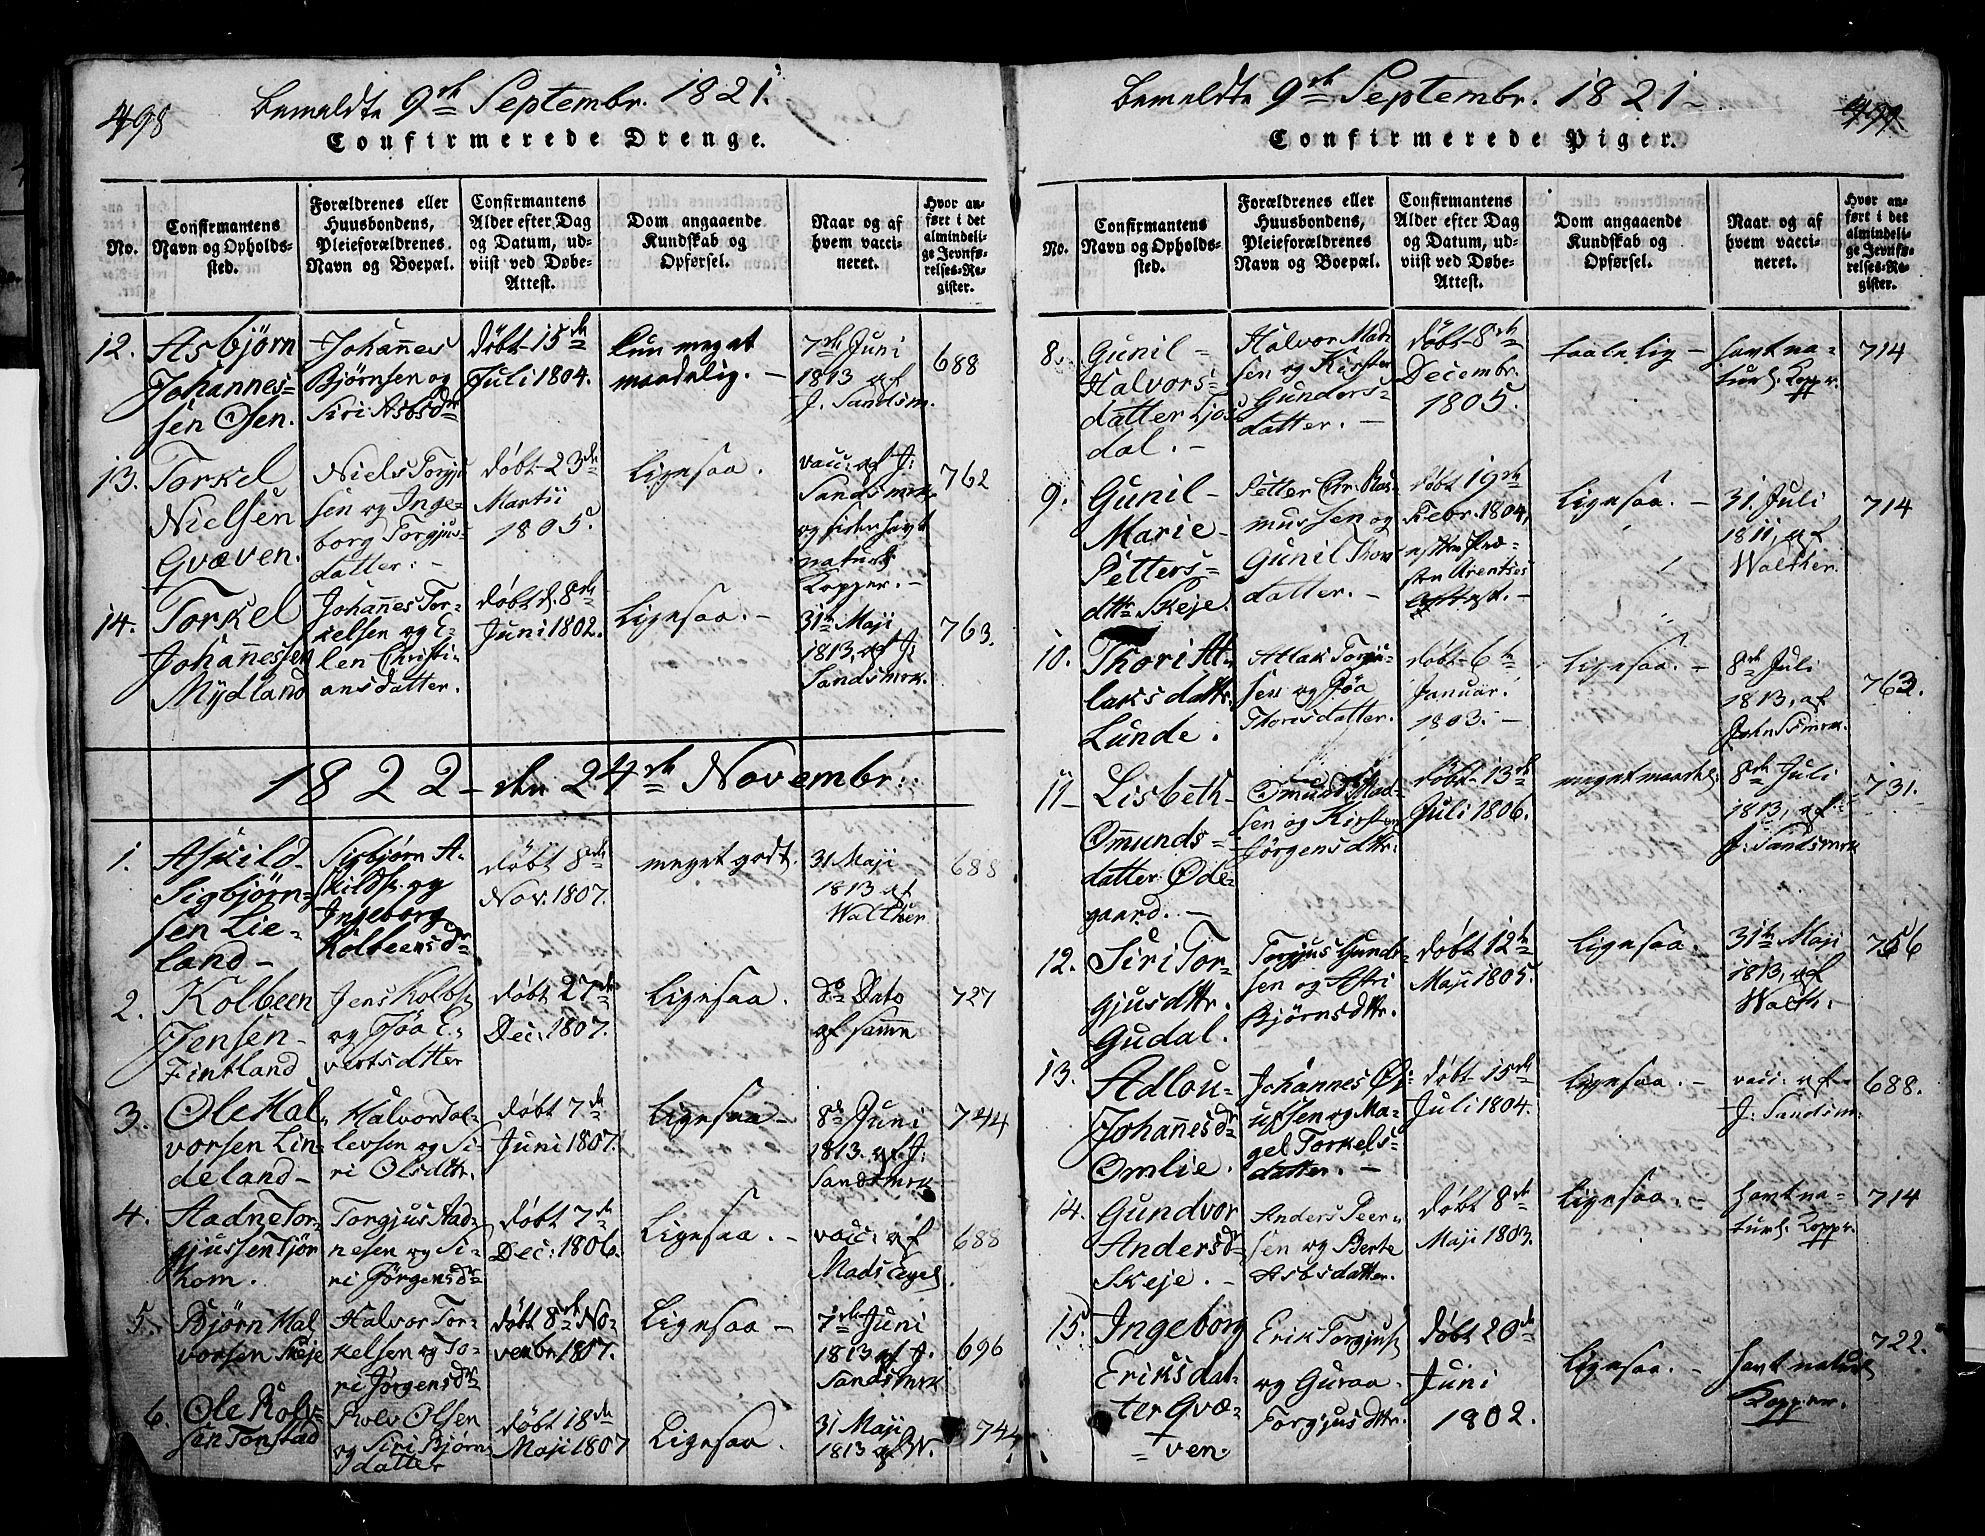 498
bemeldte 9de Septembr. 1821.
Confirmerede Drenge.
No.
Confirmantens
Navn og Opholds-
sted.
Forældrenes eller
Huusbondens,
Pleieforældrenes
Navn og Boepæl.
Confirmantens
Alder efter Dag
og Datum, ud-
viist ved Døbe-
Attest.
Dom angaaende
Kundskab og
Opførsel.
Naar og af
hvem vacci-
neret.
Hvor an-
ført i det
almindeli-
ge Jevnfø-
relses-Re-
gister.
12.
Asbjørn
Johannes-
sen Osen.
Johannes
Bjørnsen og
Siri Asbsdr
døbt 15de
Juli 1804.
kun meget
maadelig. -
7de Juni
1813 af
J. Sandsm.
688
13.
Torkel
Nielsen
Gvæven.
Niels Torgju
sen og Inge-
borg Torgjus-
datter. -
døbt 23de
Martii
1805.
Ligesaa.
vacc: af J:
Sandsmrk
og siden havt
naturl.
Kopper. -
762
14.
Torkel
Johannessen
Mydland
Johannes Tor-
kelsen og E-
len Christi-
ansdatter.
døbt d. 8de
Juni 1802.
Ligesaa. -
31te Maji
1813, af J:
Sandsmrk.
763.
1822 - den 24de Novembr:
1.
Askild
Sigbjørn-
sen Lie-
land -
Sigbjørn A-
skilds. og
Ingeborg
Kolbeensdr
døbt 8de
Nov. 1807.
meget godt.
31 Maji
1813 af
Walther
688
2.
Kolbeen
Jensen
Fintland
Jens Kolbs.
og Gjøa E-
vertsdatter
døbt 27de
Dec: 1807.
Ligesaa.
do Dato
af samme
727
3.
Ole Hal
vorsen Lin-
deland -
Halvor Tol-
levsen og Si-
ri Olsdttr.
døbt 7de
Juni 1807.
Ligesaa -
8de Juni
1813. af J:
Sandsmrk
744
4.
Aadne Tor-
gjussen Tjør
hom.
Torgjus Aad-
nesen og Si-
ri Jørgensdr
døbt 7de
Dec: 1806.
Ligesaa. -
vacc: af
Mads Egel
688
5.
Bjørn Hal
vorsen Skeje
Halvor Tor-
kelsen og To-
ri Jørgensdr
døbt 8de No-
vembr. 1807.
Ligesaa -
7de Juni
1813 af J.
Sandsmrk
696
6.
Ole Rolv-
sen Tonstad
Rolv Olsen
og Siri Bjørns
datter
døbt 18de
Maji 1807
Ligesaa.
31 Maji
1813 af W.
744
499
bemeldte 9de Septembr. 1821 -
Confirmerede Piger.
No.
Confirmantens
Navn og Opholds-
sted.
Forældrenes eller
Huusbondens,
Pleieforældrenes
Navn og Boepæl.
Confirmantens
Alder efter Dag
og Datum, ud-
viist ved Døbe-
Attest.
Dom angaaende
Kundskab og
Opførsel.
Naar og af
hvem vacci-
neret.
Hvor an-
ført i det
almindeli-
ge Jevnfø-
relses-Re-
gister.
8.
Gunil
Halvors-
datter Ljos-
dal. -
Halvor Mad-
sen og Kirsten
Gunders-
datter. -
døbt 8de
Decembr.
1805.
taalelig -
havt na-
turl. Kopp.
714
9.
Gunil
Marie
Petters-
dttr Skeje.
Petter Chr. Ras-
mussen og
Gunil Thor
datter. -
døbt 19de
Febr. 1804,
efter Præ-
sten Arentses
Attest. -
Ligesaa. -
31. Juli
1811, af
Walther.
714
10.
Thori At-
laksdattr.
Lunde.
Atlak Torgju-
sen og Gjøa
Thoresdatter.
døbt 6te
Januar.
1803. -
Ligesaa. -
8de Juli
1813, af
John Sdmrk.
763.
11 -
Lisbeth
Omunds-
datter Øde-
gaard. -
Omund Mad-
sen og Kirsten
Jørgensdttr.
døbt 13de
Juli 1806.
meget maadel.
8de Juli
1813, af
J. Sandsmrk
731.
12.
Siri Tor-
gjusdttr.
Gudal.
Torgjus Gundr-
sen og Astri
Bjørnsdttr.
døbt 12te
Maji 1805.
Ligesaa.
31te Maji
1813, af
Walth. -
13.
Adlou
Johannesdr
Omlie.
Johannes Øs-
ufsen og Ma-
gel Torkels-
datter. -
døbt 15de
Juli 1804.
Ligesaa. -
vacc: af
J. Sandsm.
688.
14.
Gundvor
Andersdr
Skeje. -
Anders Peer-
sen og Berte
Asbsdatter.
døbt 8de
Maji 1803.
Ligesaa. -
havt na-
turl. Kopp.
714
15.
Ingeborg
Eriksdat-
ter Gvæ-
ven.
Erik Torgjus
og Guraa
Torgjusdttr.
døbt 20de
Juni
1802.
Ligesaa. -
havt naturl
Kopper.
722.